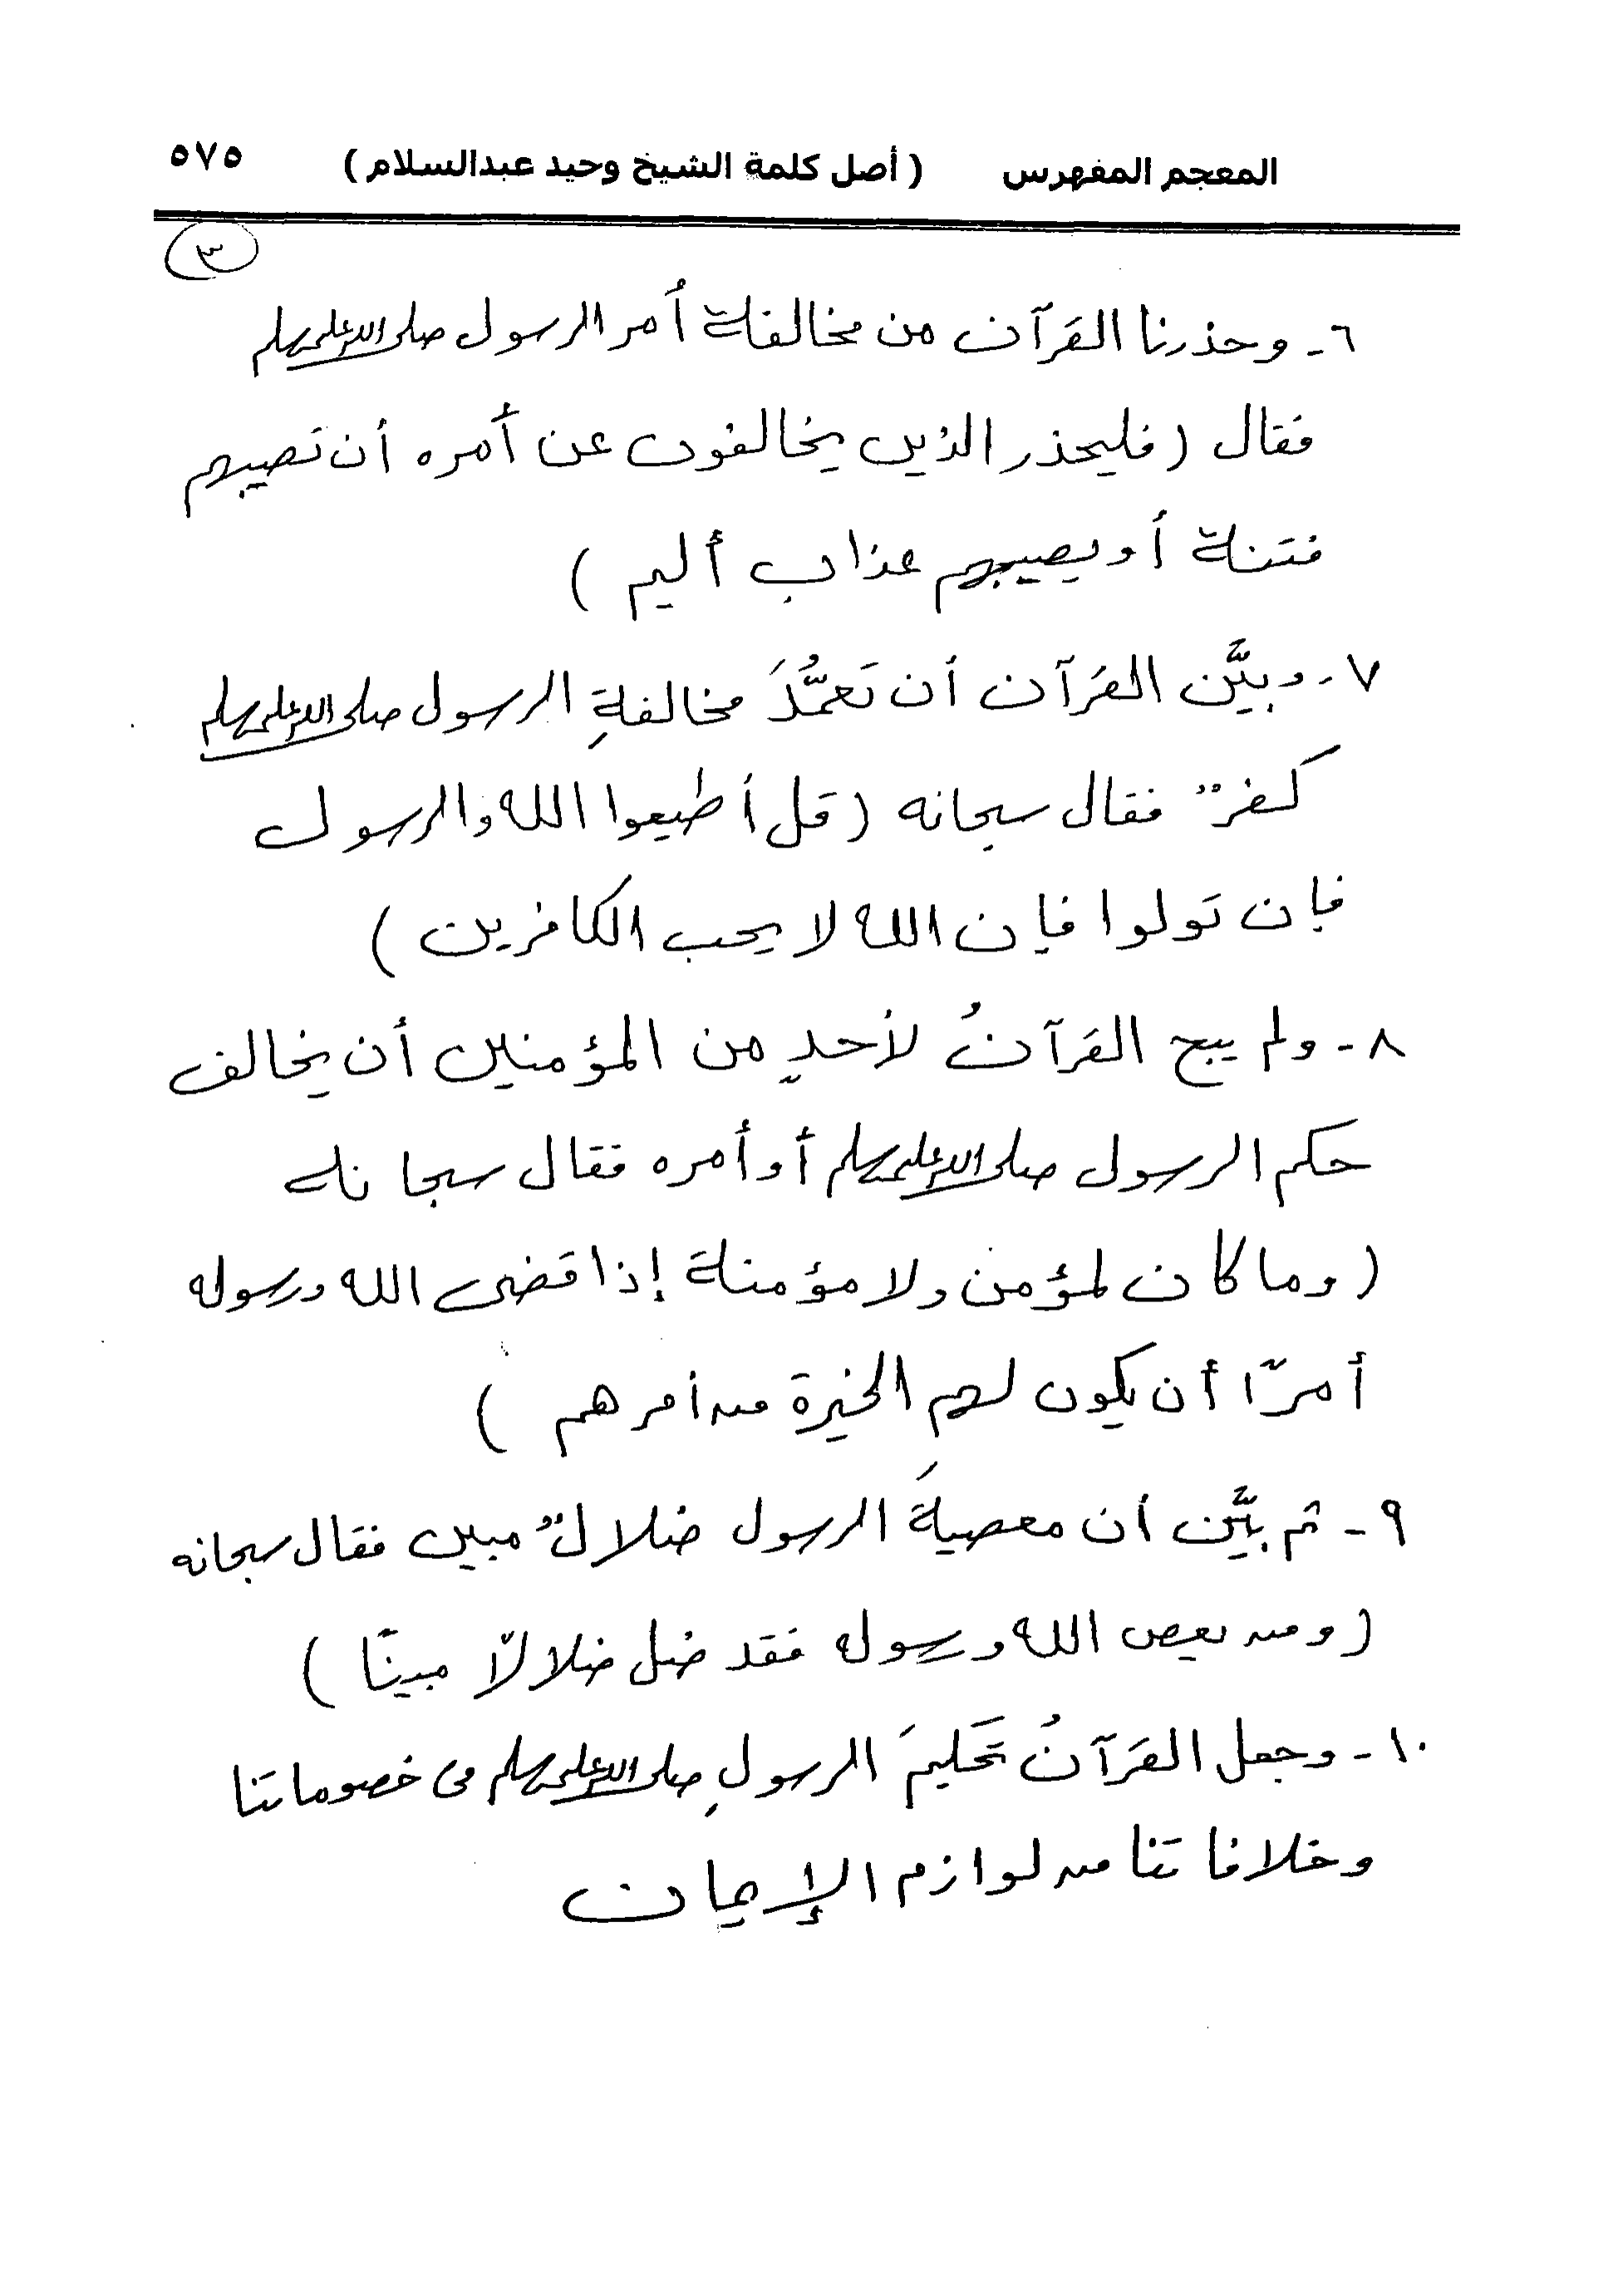 المعجم المفهرس ( أصل كلمة الشيخ وحيد عبدالسلام ) ٥٧٥
٣
٦- وحذرنا القرآن من مخالفة أمر الرسول صلى الله عليه وسلم
فقال ( فليحذر الذين يخالفون عن أمره أن تصيبهم
فتنة أو يصيبهم عذاب أليم )
٧- وبيَّن القرآن أن تَعمُّدَ مخالفةِ الرسول صلى الله عليه وسلم
كفرٌ فقال سبحانه ( قل أطيعوا الله والرسول
فإن تولوا فإن الله لا يحب الكافرين )
٨- ولم يبح القرآنُ لأحدٍ من المؤمنين أن يخالف
حكم الرسول صلى الله عليه وسلم أو أمره فقال سبحانه
( وما كان لمؤمن ولا مؤمنة إذا قضى الله ورسوله
أمرًا أن يكون لهم الخيرة من أمرهم )
٩- ثم بيَّن أن معصيةَ الرسول ضلالٌ مبين فقال سبحانه
( ومن يعص الله ورسوله فقد ضل ضلالًا مبينًا )
١٠- وجعل القرآنُ تحكيمَ الرسولِ صلى الله عليه وسلم في خصوماتنا
وخلافاتنا من لوازم الإيمان